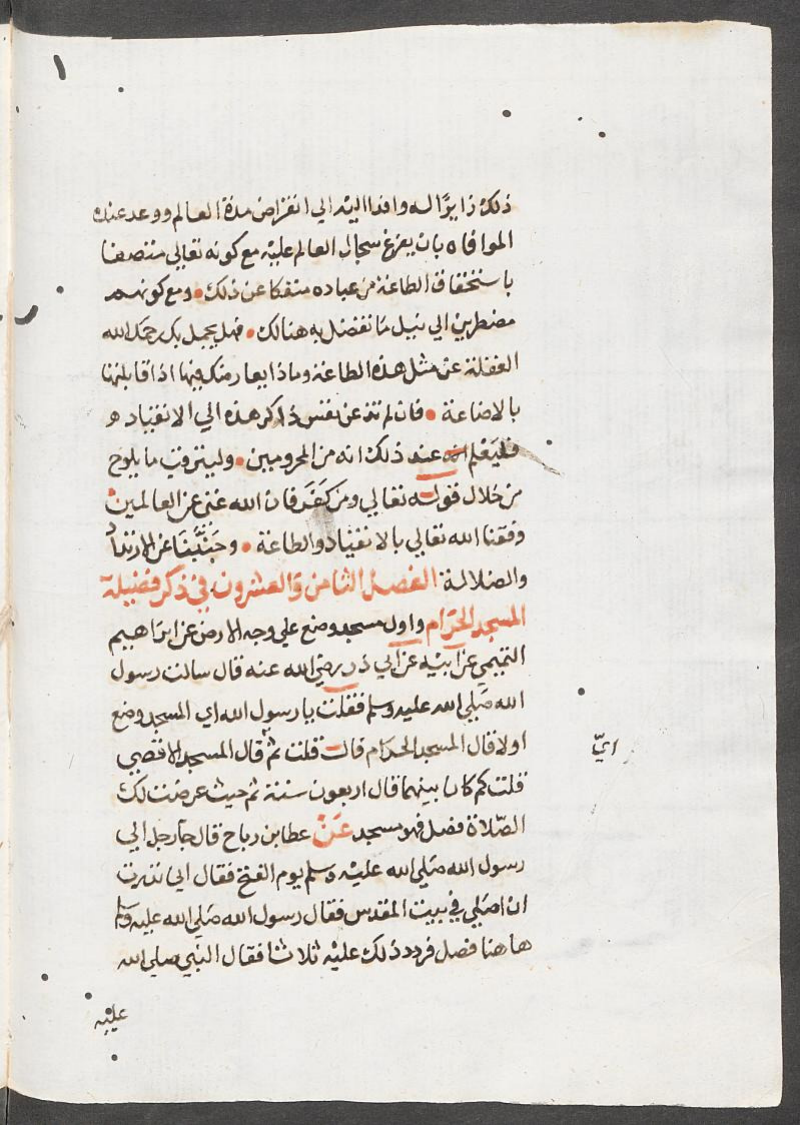 ذلك زايرا له وافدا اليه الي انقراض مدة العالم ووعد عنده
الموافاه بان يفرغ سجال العالم عليه مع كونه تعالي متصفا
باستحقاق الطاعة من عباده منفكا عن ذلك • ومع كونهم
مضطرين الي نيل ما تفضل به هنالك • فهل يجمل بك رحمك الله
الغفلة عن مثل هذه الطاعة وماذا يعار منك فيها اذا قابلتها
بالاضاعة • فان لم تذعن نفس ذاكر هذه الي الانقياد ه
فليعلم عند ذلك انه من المحرومين • وليترقب ما يلوح
من خلال قوله تعالي ومن كفر فان الله غني عن العالمين
وفقنا الله تعالي بالانقياد والطاعة • وجنبنا عن الارتداد
والضلالة الفصل الثامن والعشرون في ذكر فضيلة
المسجد الحرام واول مسجد وضع علي وجه الارض عن ابراهيم
التيمي عن ابيه عن ابي ذر رضي الله عنه قال سالت رسول
الله صلي الله عليه وسلم فقلت يا رسول الله اي المسجد وضع
اولا قال المسجد الحرام قالت قلت ثم قال المسجد الاقصي
ايّ
قلت كم كان بينهما قال اربعون سنة ثم حيث عرضت لك
الصلاة فصل فهو مسجد عن عطا بن رباح قال جا رجل الي
رسول الله صلي الله عليه وسلم يوم الفتح فقال اني نذرت
ان اصلي في بيت المقدس فقال رسول الله صلي الله عليه وسلم
هاهنا فصل فردد ذلك عليه ثلاثا فقال النبي صلي الله
عليه